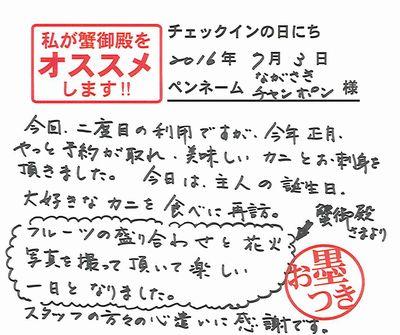 私が蟹御殿を
オススメ
します!!
チェックインの日にち
2016年 7月 3日
ペンネーム ながさきチャンポン 様
今回、二度目の利用ですが、今年正月、
やっと予約が取れ、美味しい カニとお刺身を
頂きました。 今日は、主人の誕生日。
大好きな カニを 食べに 再訪。
フルーツの盛り合わせと 花火
写真を撮って頂いて 楽しい
一日と なりました。
スタッフの方々の心遣いに 感謝です。
蟹御殿
さまより
お墨つき